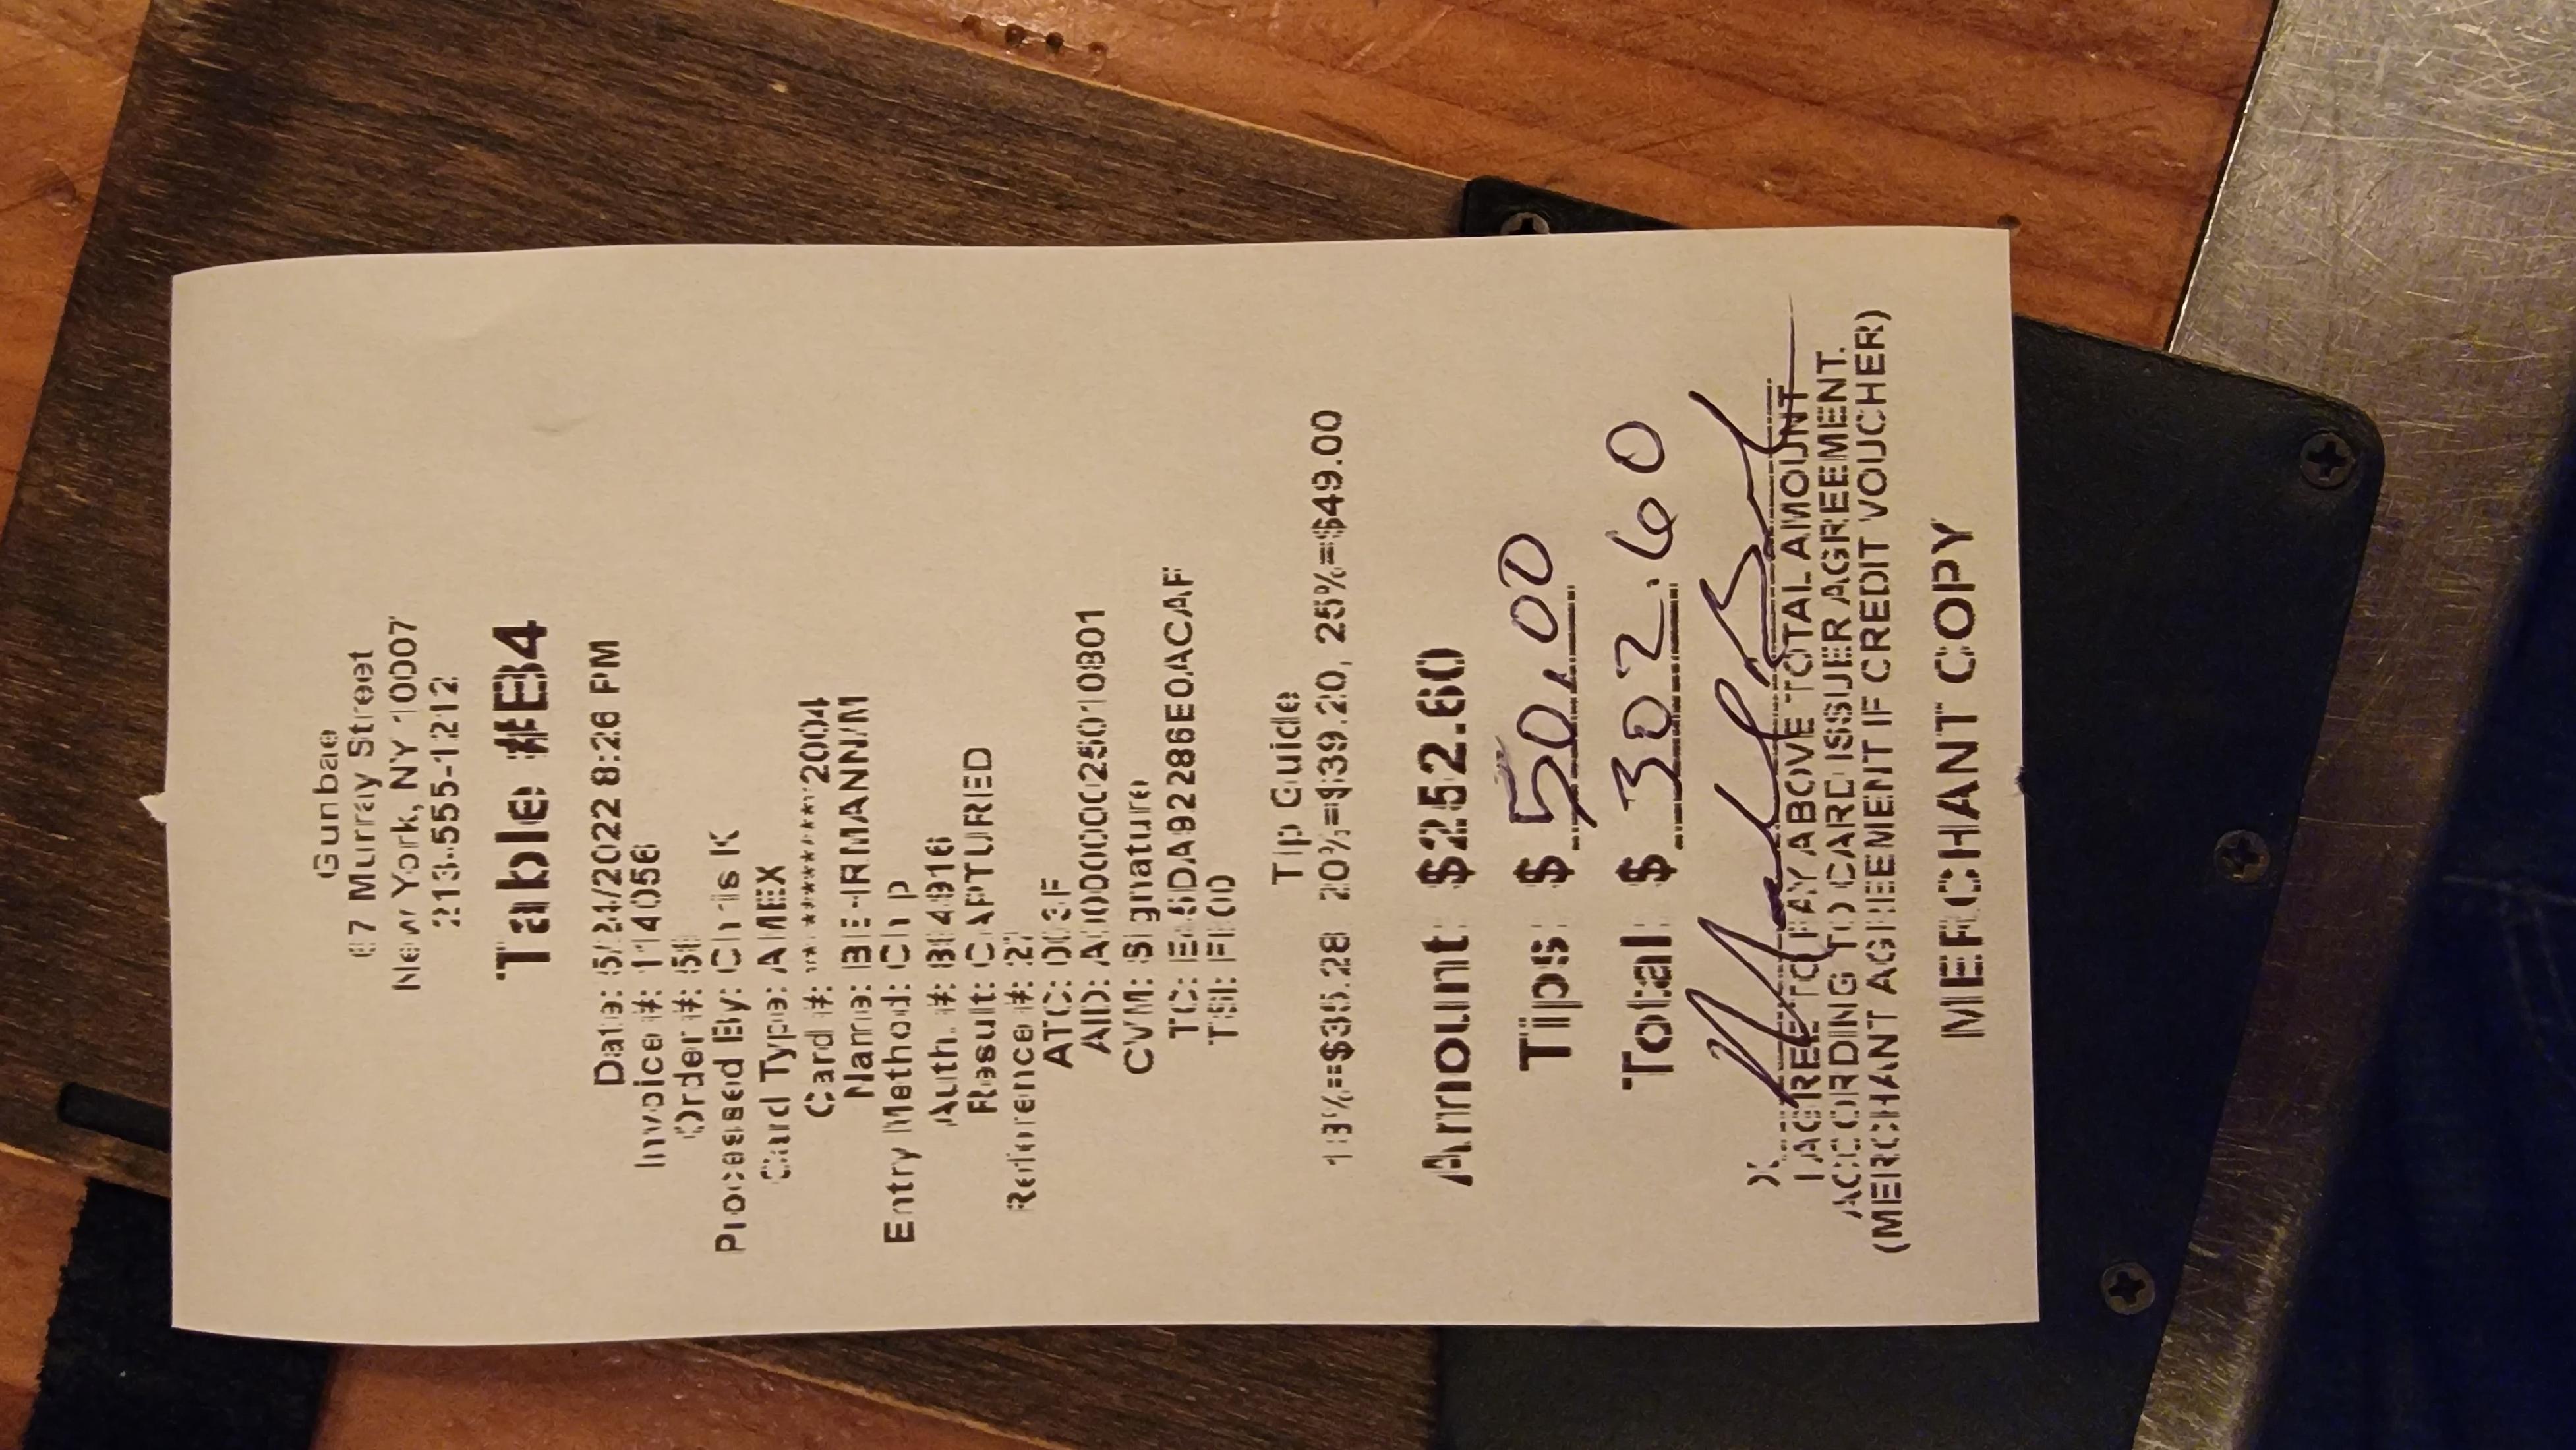 Gunbae
67 Murray Street
New York, NY 10007
213-555-1212
Table #B4
Date: 5/24/2022 8:26 PM
Invoice #: 114056
Order #: 56
Processed By: Chris K
Card Type: AMEX
Card #: ***********2004
Name: BEHRMANN/M
Entry Method: Chip
Auth. #: 
Result: CAPTURED
Reference #: 27
ATC: 003F
AID: A000000025010801
CVM: Signature
TC: 
TSI: F800
Tip Guide
18%=$35.28 20%=$39.20, 25%=$49.00
Amount: $252.60
Tips: $ 50.00
Total: $ 302.60
X
I AGREE TO PAY ABOVE TOTAL AMOUNT
ACCORDING TO CARD ISSUER AGREEMENT.
(MERCHANT AGREEMENT IF CREDIT VOUCHER)
MERCHANT COPY